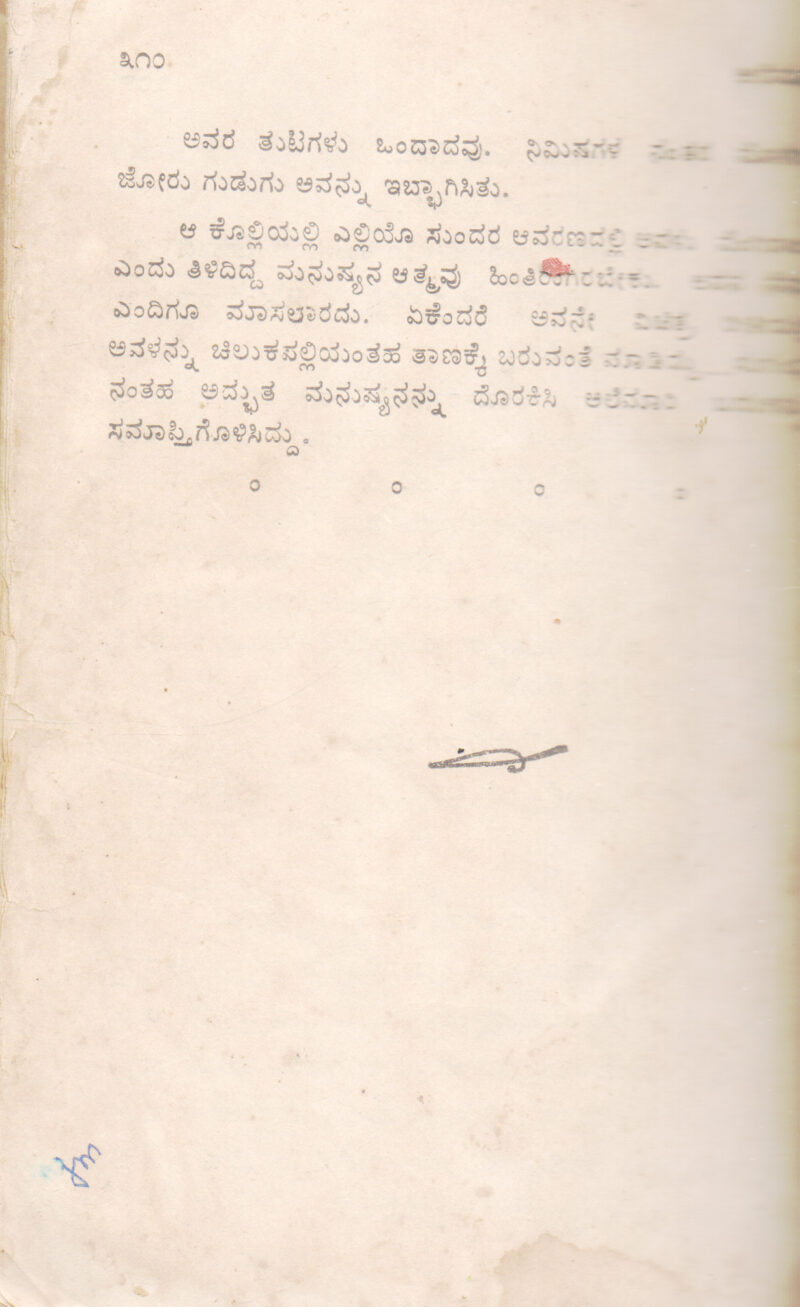 ೩೧೦
ಅವರ ತುಟಿಗಳು ಒಂದಾದವು. ನಿಮಿಷಗಳ
ಜೋರು ಗುಡುಗು ಅವನ್ನು ಇಬ್ಭಾಗಿಸಿತು.
ಆ ಕೊಲ್ಲಿಯಲ್ಲಿ ಎಲ್ಲಿಯೊ ಸುಂದರ ಆವರಣದಲ್ಲಿ
ಎಂದು ತಿಳಿದಿದ್ದ ಮನುಷ್ಯನ ಆತ್ಮವು
ಎಂದಿಗೂ ಮಾಸಲಾರದು. ಏಕೆಂದರೆ ಅವನೇ
ಅವಳನ್ನು ಚಿಲುಕಪಲ್ಲಿಯಂತಹ ತಾಣಕ್ಕೆ ಬರುವಂತೆ
ನಂತಹ ಅದ್ಭುತ ಮನುಷ್ಯನನ್ನು ದೊರಕಿಸಿ
ಸಮಾಪ್ತಿಗೊಳಿಸಿದ್ದು.
೦ ೦ ೦